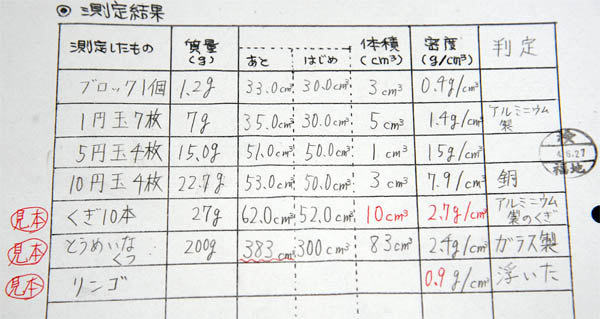 ◎測定結果
測定したもの 質量(g) あと はじめ 体積(cm³) 密度(g/cm³) 判定
ブロック1個 1.2g 33.0cm³ 30.0cm³ 3cm³ 0.4g/cm³
1円玉7枚 7g 35.0cm³ 30.0cm³ 5cm³ 1.4g/cm³ アルミニウム製
5円玉4枚 15.0g 51.0cm³ 50.0cm³ 1cm³ 15g/cm³
10円玉4枚 22.7g 53.0cm³ 50.0cm³ 3cm³ 7.9/cm³ 銅
見本 くぎ10本 27g 62.0cm³ 52.0cm³ 10cm³ 2.7g/cm³ アルミニウム製のくぎ
見本 とうめいなくつ 200g 383cm³ 300cm³ 83cm³ 2.4g/cm³ ガラス製
見本 リンゴ 0.9g/cm³ 浮いた
6.27
福地